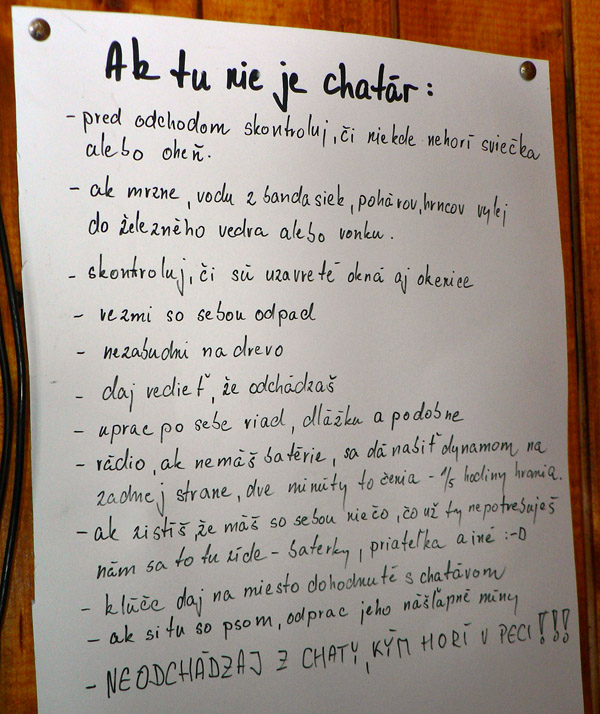 Ak tu nie je chatár:
- pred odchodom skontroluj, či niekde nehorí sviečka
alebo oheň.
- ak mrzne, vodu z bandasiek, pohárov, hrncov vylej
do železného vedra alebo vonku.
- skontroluj, či sú uzavreté okná aj okenice
- vezmi so sebou odpad
- nezabudni na drevo
- daj vedieť, že odchádzaš
- uprac po sebe riad, dlážku a podobne
- rádio, ak nemáš batérie, sa dá nabiť dynamom na
zadnej strane, dve minúty točenia - 1/5 hodiny hrania.
- ak zistíš, že máš so sebou niečo, čo už ty nepotrebuješ
nám sa to tu zíde - baterky, priateľka a iné :-D
- kľúče daj na miesto dohodnuté s chatárom
- ak si tu so psom, odprac jeho nášľapné míny
- NEODCHÁDZAJ Z CHATY, KÝM HORÍ V PECI!!!